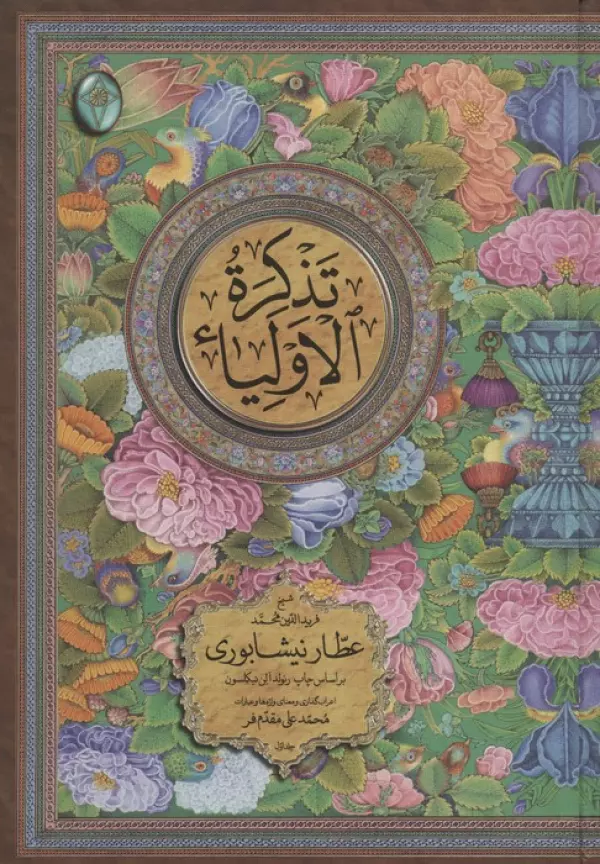 تَذکِرَةُ
الاَولِیاء
شیخ
فریدالدّین محمّد
عطّار نیشابوری
بر اساس چاپ رینولد الن نیکلسون
اعراب‌گذاری و معنای واژه‌ها و عبارات
مُحمّد علی مقدّم فر
جلد اول